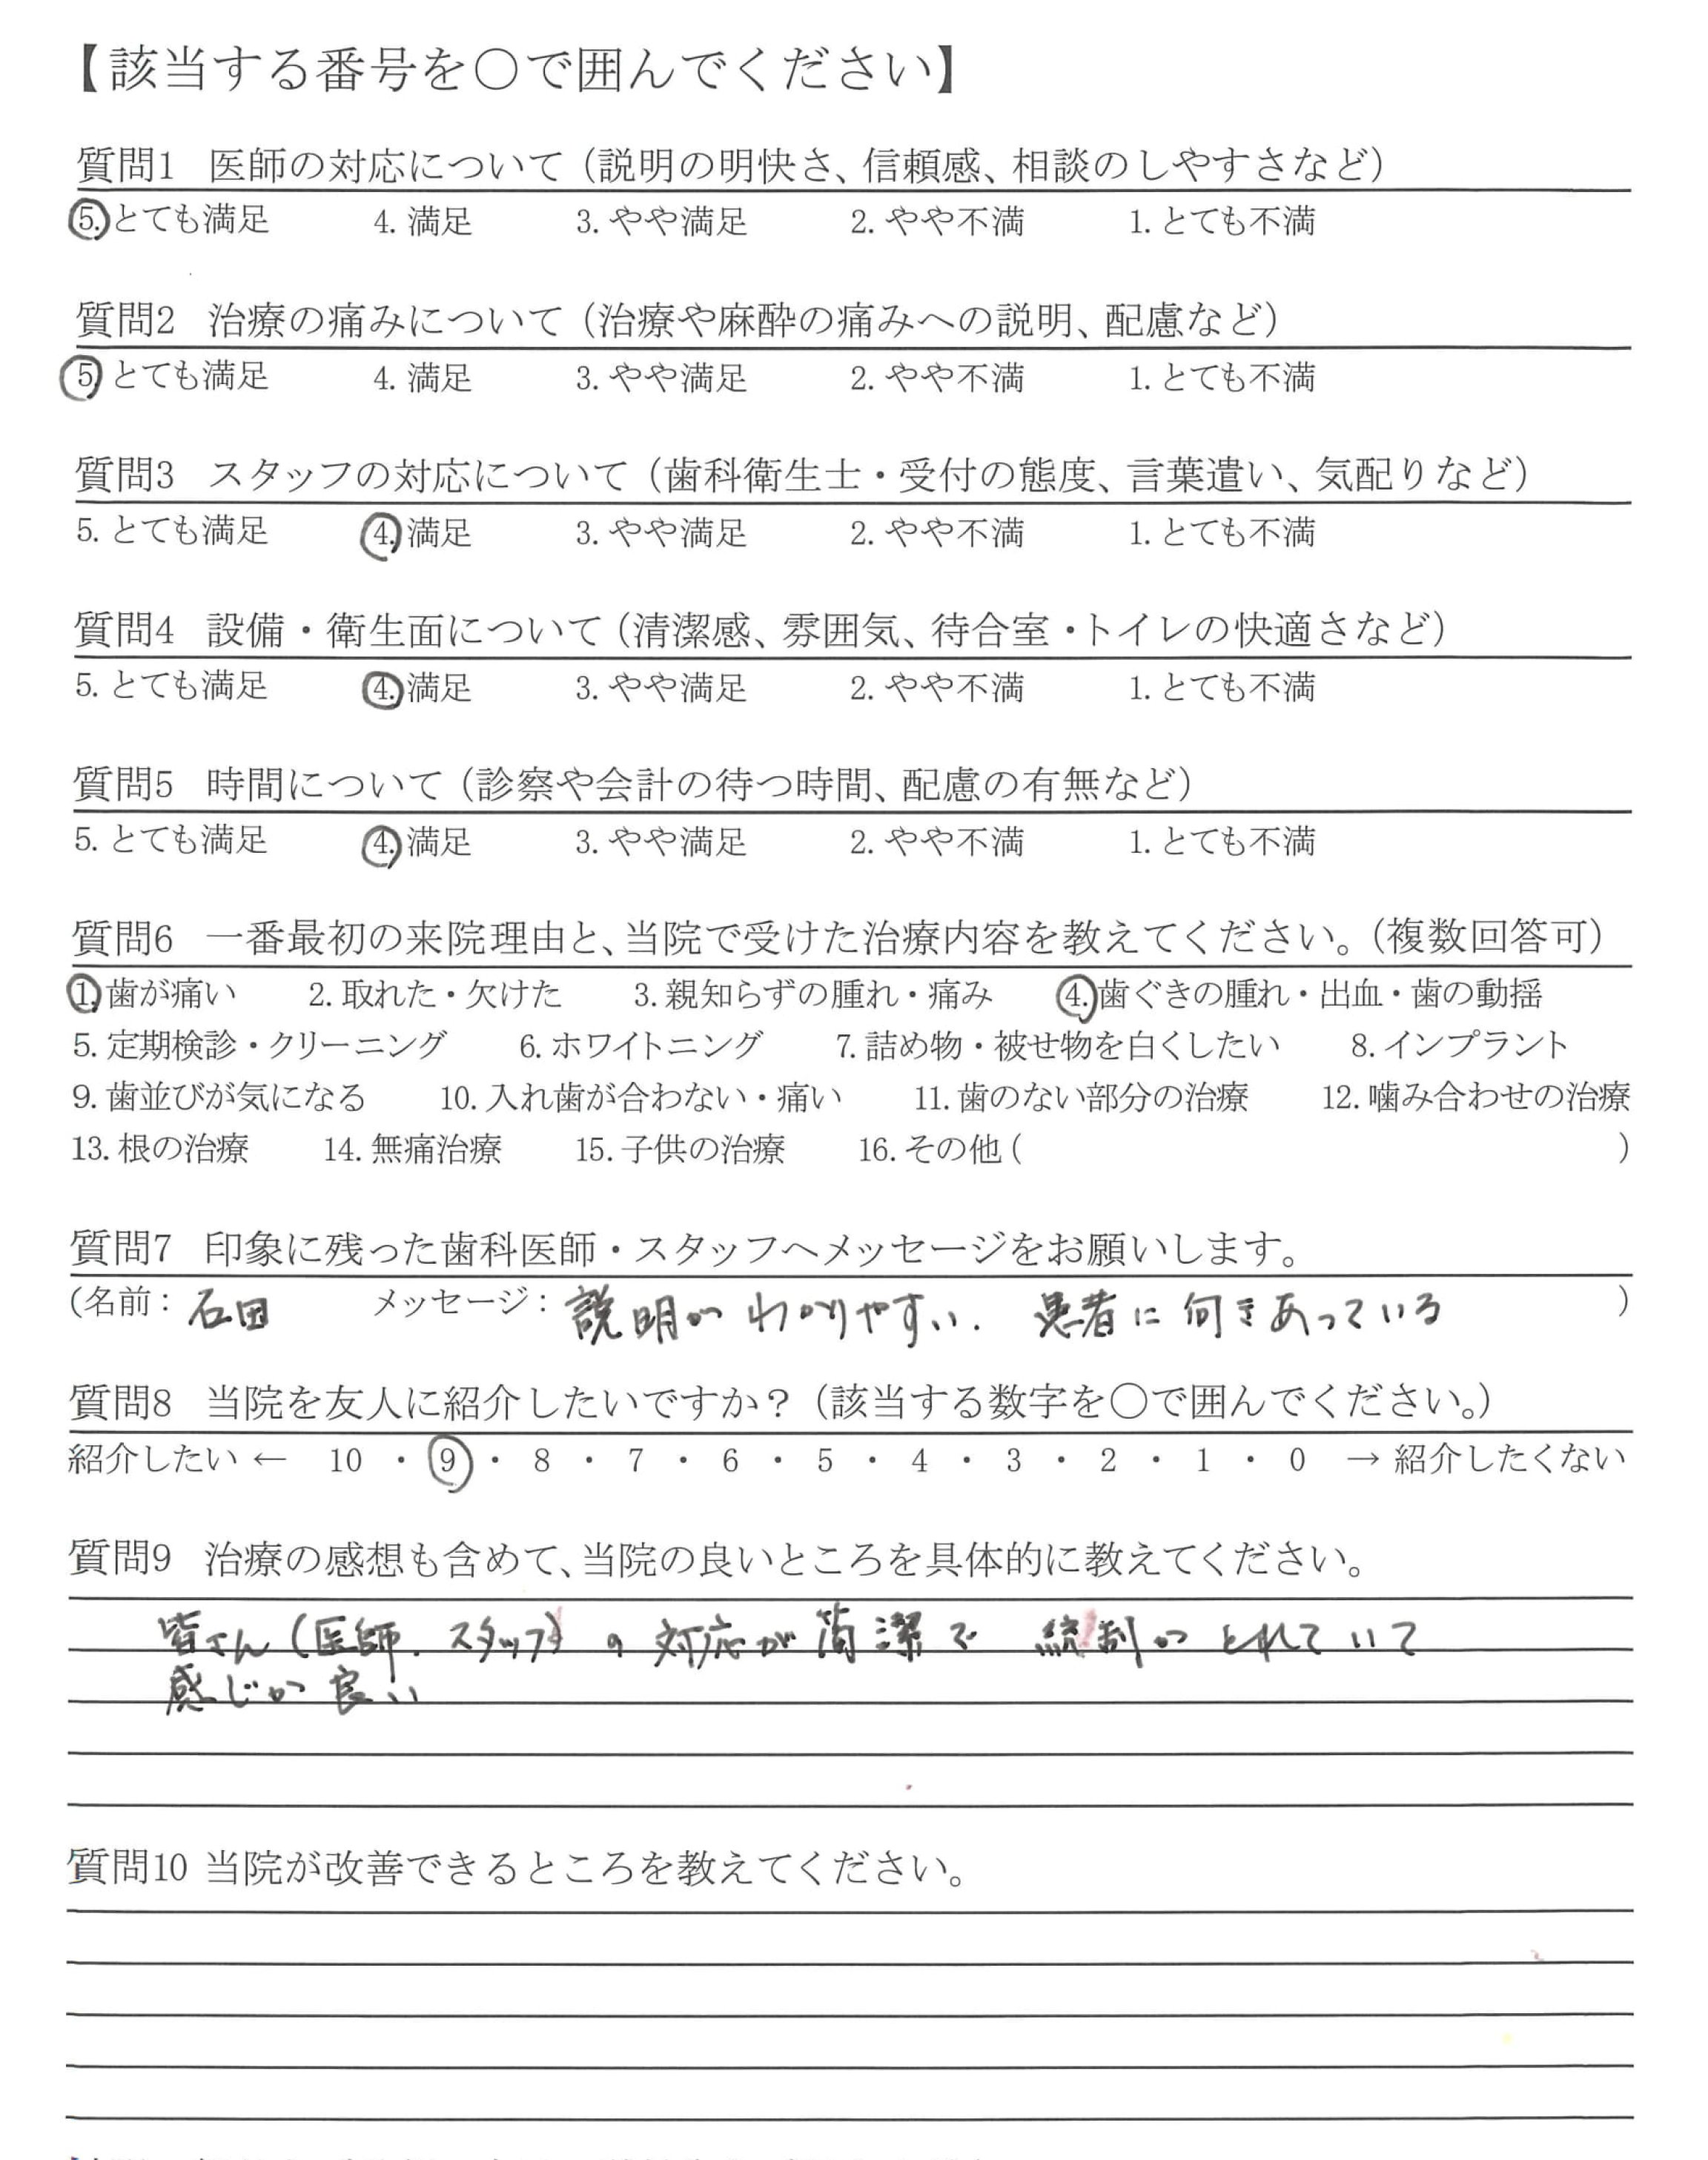 【該当する番号を〇で囲んでください】
質問1 医師の対応について（説明の明快さ、信頼感、相談のしやすさなど）
5. とても満足 4. 満足 3. やや満足 2. やや不満 1. とても不満
質問2 治療の痛みについて（治療や麻酔の痛みへの説明、配慮など）
5. とても満足 4. 満足 3. やや満足 2. やや不満 1. とても不満
質問3 スタッフの対応について（歯科衛生士・受付の態度、言葉遣い、気配りなど）
5. とても満足 4. 満足 3. やや満足 2. やや不満 1. とても不満
質問4 設備・衛生面について（清潔感、雰囲気、待合室・トイレの快適さなど）
5. とても満足 4. 満足 3. やや満足 2. やや不満 1. とても不満
質問5 時間について（診察や会計の待つ時間、配慮の有無など）
5. とても満足 4. 満足 3. やや満足 2. やや不満 1. とても不満
質問6 一番最初の来院理由と、当院で受けた治療内容を教えてください。（複数回答可）
1. 歯が痛い 2. 取れた・欠けた 3. 親知らずの腫れ・痛み 4. 歯ぐきの腫れ・出血・歯の動揺
5. 定期検診・クリーニング 6. ホワイトニング 7. 詰め物・被せ物を白くしたい 8. インプラント
9. 歯並びが気になる 10. 入れ歯が合わない・痛い 11. 歯のない部分の治療 12. 噛み合わせの治療
13. 根の治療 14. 無痛治療 15. 子供の治療 16. その他（ ）
質問7 印象に残った歯科医師・スタッフへメッセージをお願いします。
（名前：石田 メッセージ：説明がわかりやすい. 患者に向きあっている ）
質問8 当院を友人に紹介したいですか？（該当する数字を〇で囲んでください。）
紹介したい ← 10 ・ 9 ・ 8 ・ 7 ・ 6 ・ 5 ・ 4 ・ 3 ・ 2 ・ 1 ・ 0 → 紹介したくない
質問9 治療の感想も含めて、当院の良いところを具体的に教えてください。
皆さん（医師. スタッフ）の対応が簡潔で 統制がとれていて
感じが良い
質問10 当院が改善できるところを教えてください。